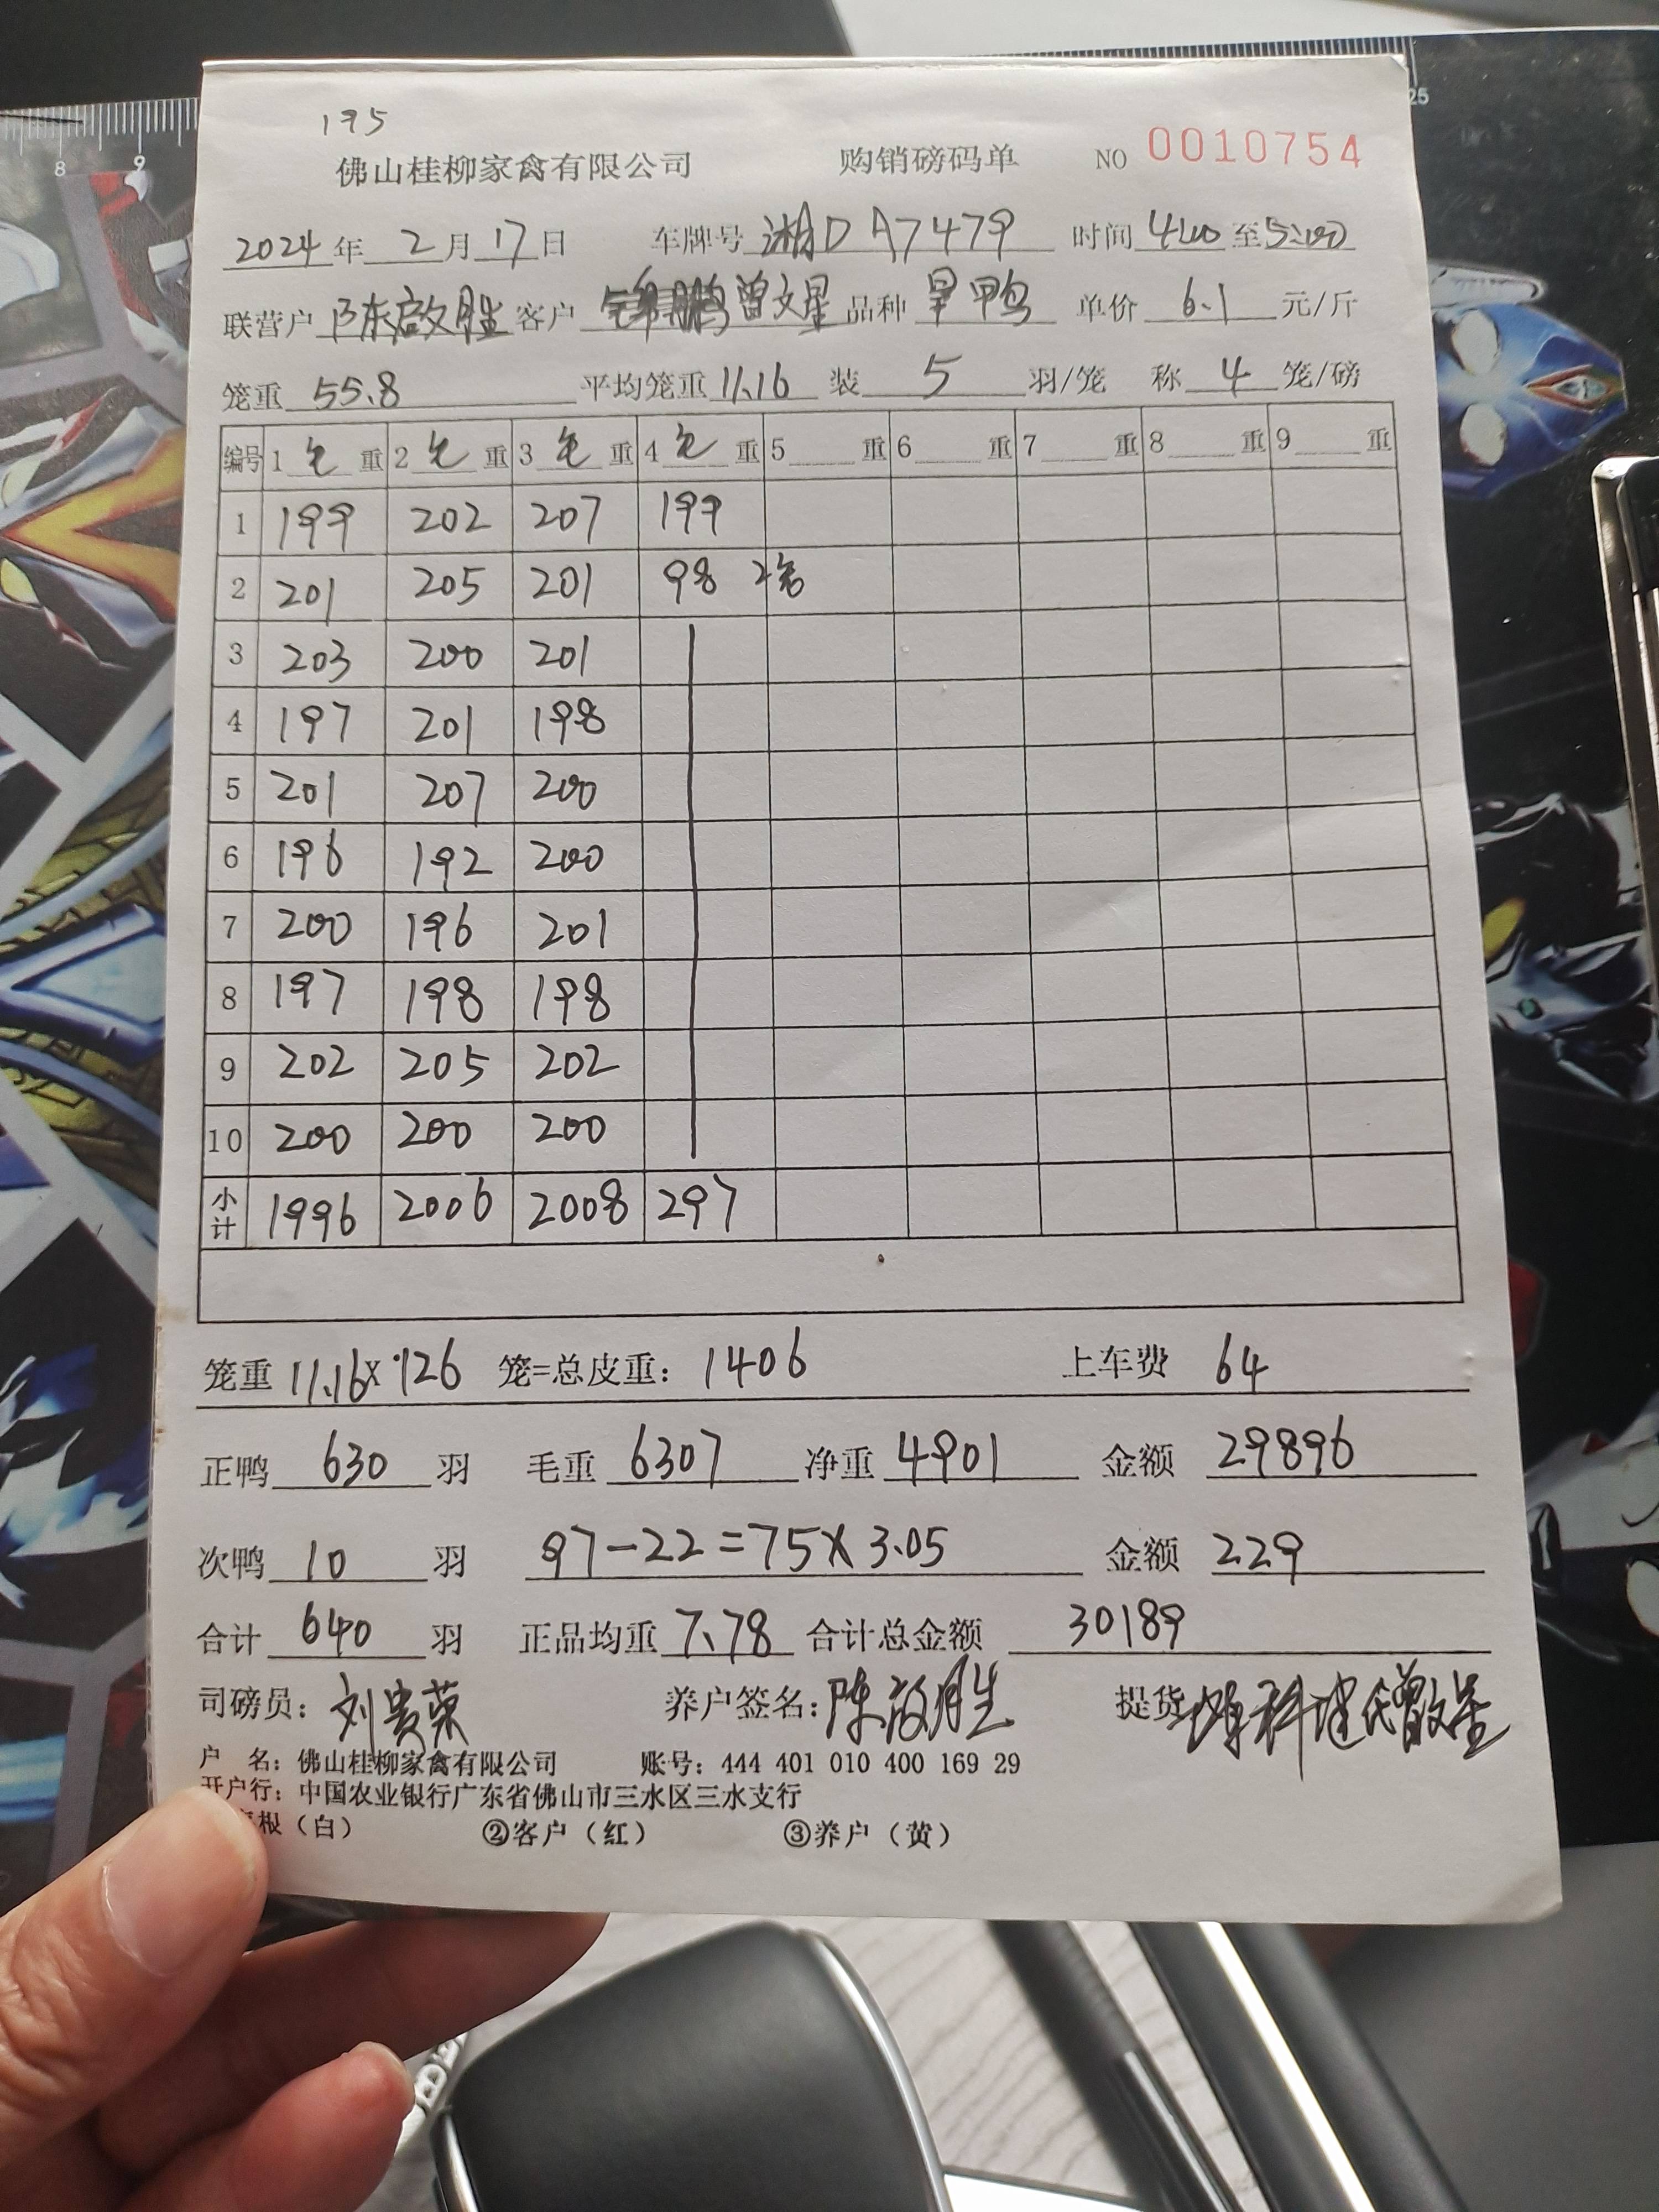 195
佛山桂柳家禽有限公司 购销磅码单 NO 0010754
2024年2月17日 车牌号 湘DA7479 时间 4:00 至 5:00
联营户 陈启胜 客户 曾文星 品种 旱鸭 单价 6.1 元/斤
笼重 55.8 平均笼重 11.16 装 5 羽/笼 称 4 笼/磅
编号 1毛重 2毛重 3毛重 4毛重 5 重 6 重 7 重 8 重 9 重
1 199 202 207 199
2 201 205 201 98 2笼
3 203 200 201
4 197 201 198
5 201 207 200
6 196 192 200
7 200 196 201
8 197 198 198
9 202 205 202
10 200 200 200
小计 1996 2006 2008 297
笼重 11.16×126 笼=总皮重: 1406 上车费 64
正鸭 630 羽 毛重 6307 净重 4901 金额 29896
次鸭 10 羽 97-22=75×3.05 金额 229
合计 640 羽 正品均重 7.78 合计总金额 30189
司磅员: 刘贵荣 养户签名: 陈启胜 提货
户 名: 佛山桂柳家禽有限公司 账号: 444 401 010 400 169 29
开户行: 中国农业银行广东省佛山市三水区三水支行
根（白） ②客户（红） ③养户（黄）
8 9 25